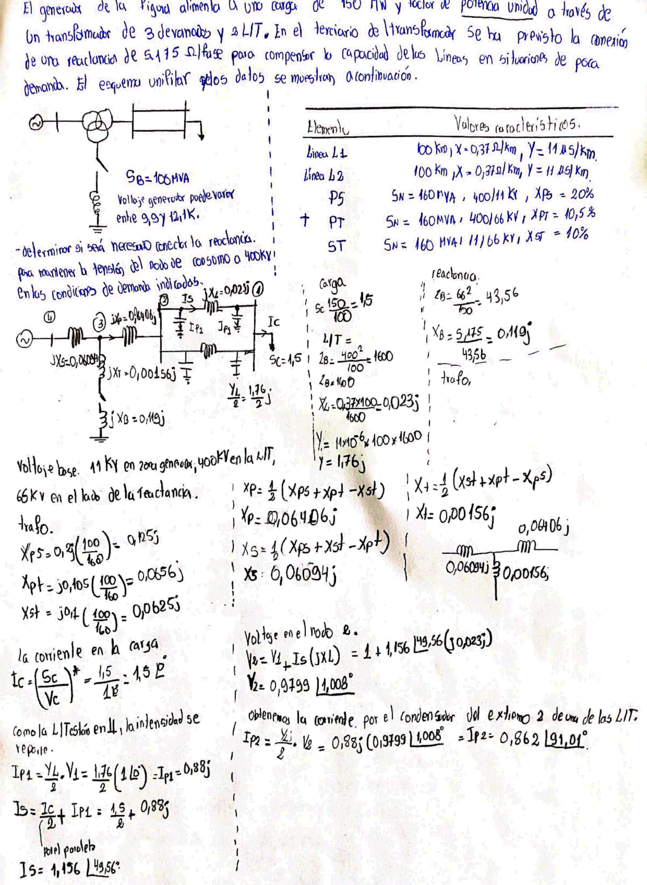 El generador de la figura alimenta a una carga de 150 MW y factor de potencia unidad a través de
un transformador de 3 devanados y 2 LIT. En el terciario del transformador se ha previsto la conexión
de una reactancia de 5,175 Ω/fase para compensar la capacidad de las Lineas en situaciones de poca
demanda. El esquema unifilar y los datos se muestran a continuación.
SB=100MVA
Voltaje generador puede variar
entre 9,9 y 12,1K.
Elemento Valores característicos.
Linea L1 100 Km, X=0,37Ω/km, Y=11 µS/km
Linea L2 100 Km, X=0,37Ω/km, Y=11 µS/km
PS SN=160MVA, 400/11 KV, XPS=20%
+ PT SN=160MVA, 400/66 KV, XPT=10,5%
ST SN=160 MVA, 11/66 KV, XST=10%
-determinar si será necesario conectar la reactancia.
para mantener la tensión del nodo de consumo a 400KV
en las condiciones de demanda indicadas.
④ jXS=0,06094 ③ jXP=0,06406j ② Is jXL=0,023j ①
IP2 IP1 Ic
Sc=1,5
jXT=0,00156j
jXB=0,119j
YL/2=1,76/2 j
carga
Sc 150/100=1,5
LIT=
ZB=400²/100=1600
ZB=1600
XL=0,37x100/1600=0,023j
Y=11x10⁻⁶x100x1600
Y=1,76j
reactancia.
ZB=66²/100=43,56
XB=5,175/43,56=0,119j
trafo,
Voltaje base. 11 KV en zona generador, 400KV en la LIT,
66KV en el lado de la reactancia.
trafo.
XPS=0,2j(100/160)=0,125j
Xpt=j0,105(100/160)=0,0656j
Xst=j0,1(100/160)=0,0625j
XP=1/2(XPS+Xpt-Xst)
XP=0,06406j
XS=1/2(XPS+Xst-Xpt)
XS: 0,06094j
Xt=1/2(Xst+Xpt-XpS)
Xt=0,00156j
0,06406j
0,06094j 0,00156j
la corriente en la carga
Ic=(Sc/Vc)*=1,5/1∠0°=1,5∠0°
como la LIT están en ll, la intensidad se
reparte.
IP1=YL/2·V1=1,76/2(1∠0°)=IP1=0,88j
Is=Ic/2+IP1=1,5/2+0,88j
por el paralelo
Is=1,156∠49,56°
Voltaje en el nodo 2.
V2=V1+Is(jXL)=1+1,156∠49,56(j0,023j)
V2=0,9799∠1,008°
obtenemos la corriente por el condensador del extremo 2 de una de las LIT.
IP2=YL/2·V2=0,88j(0,9799∠1,008°=IP2=0,862∠91,01°